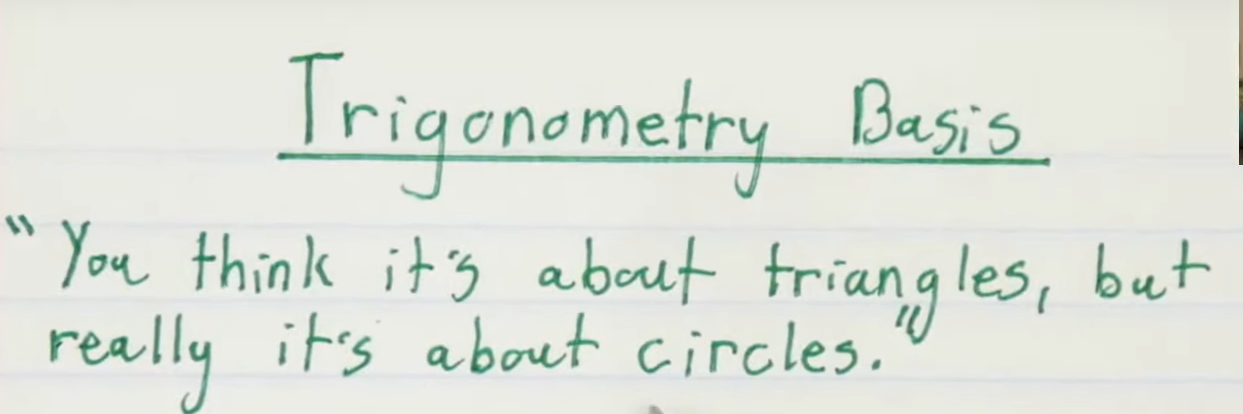 Trigonometry Basis
"You think it's about triangles, but
really it's about circles."